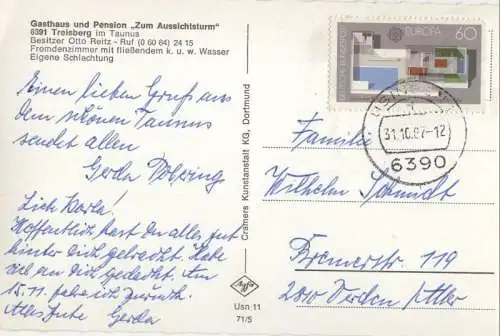 Gasthaus und Pension „Zum Aussichtsturm“
6391 Treisberg im Taunus
Besitzer Otto Reitz - Ruf (0 60 64) 24 15
Fremdenzimmer mit fließendem k. u. w. Wasser
Eigene Schlachtung
Einen lieben Gruß aus
dem schönen Taunus
sendet allen
Gerda
Lieb Karla!
Hoffentlich hast du alles gut
hinter dich gebracht. Habe
viel an dich gedacht. Am
15.11. fahre ich zurück.
Alles Gute Gerda
Cramers Kunstanstalt KG, Dortmund
Agfa
Usn 11
71/5
DEUTSCHE BUNDESPOST
EUROPA 60
31.10.87-12
6390
Familie
Wilhelm Schmidt
Bremerstr. 119
2810 Verden/Aller